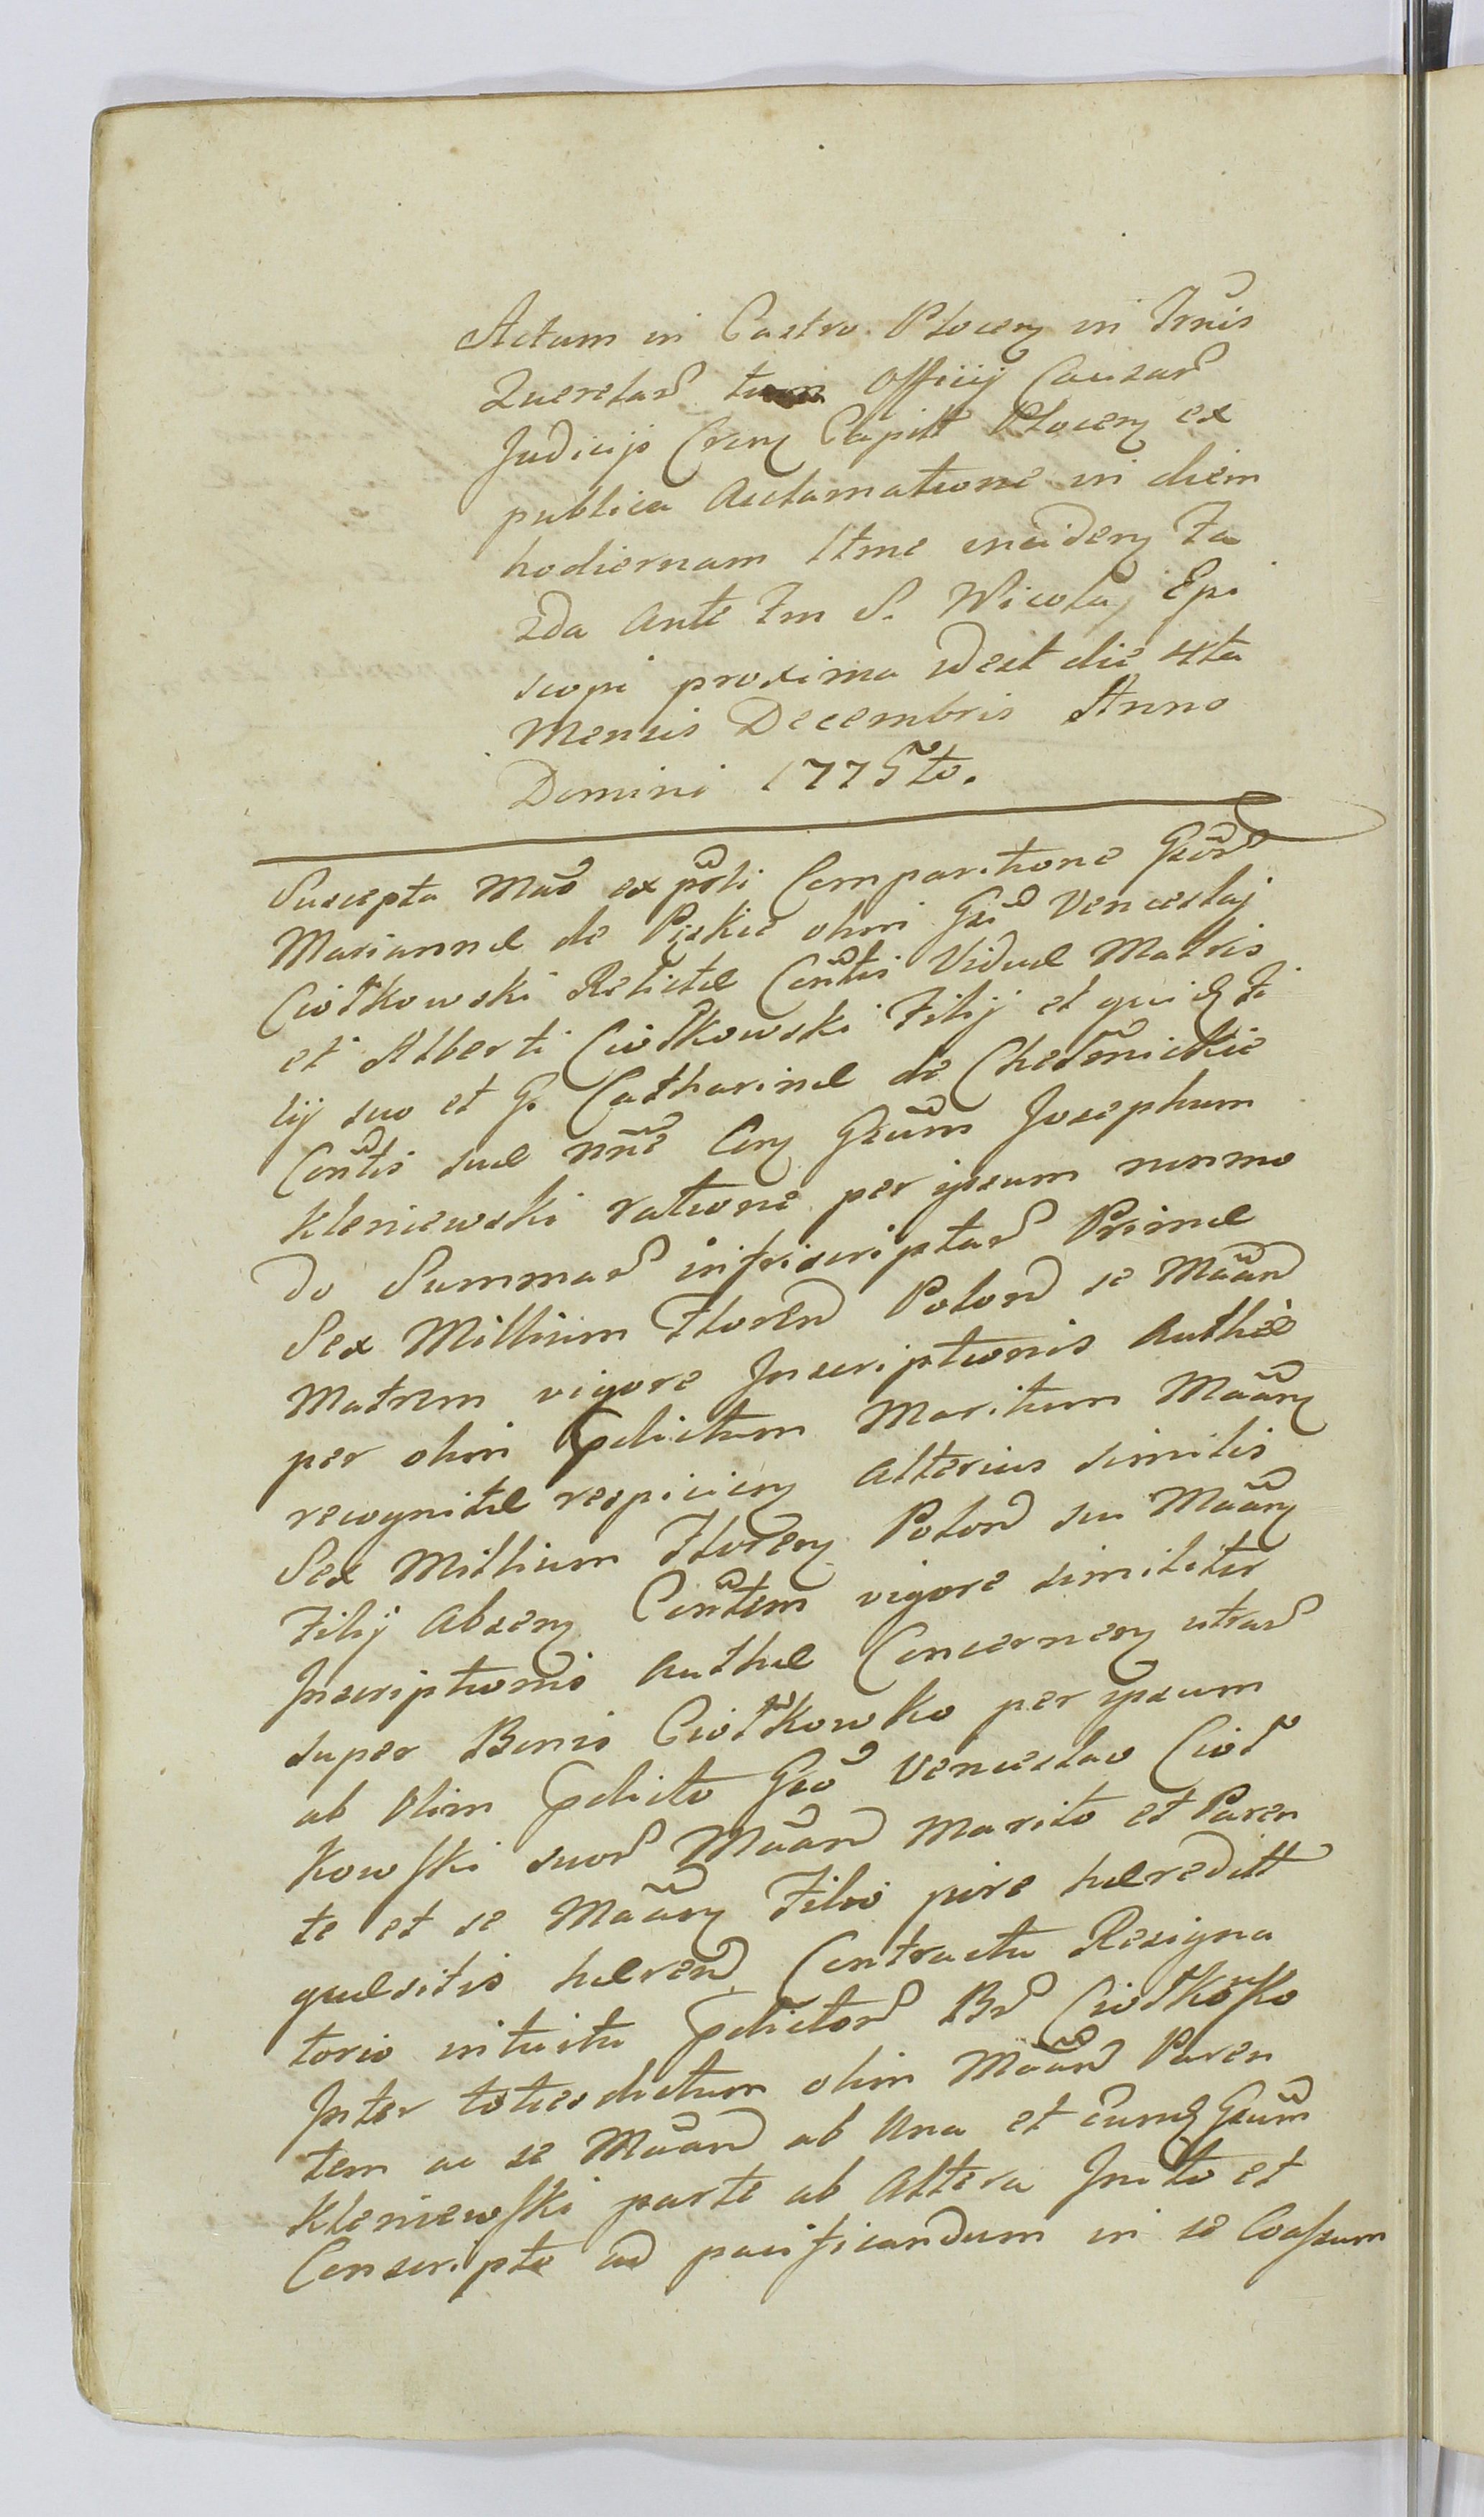 Actum in Castro Plocen in Trnis
Querelar tum Officij Causar
Judicijs Cren Capitt Plocen ex
publica Acclamatione in diem
hodiernam ltme inciden Fa
2da Ante Fm S. Nicolaj Epi
scopi proxima idest die 4ta
Mensis Decembris Anno
Domini 1775to.
Suscepta Mao ex psti Comparitione Gsor
Mariannæ de Pszkie olim Gsi Venceslaj
Ciołkowski Relictæ Conttis Viduæ Matris
et Alberti Ciołkowski Filij et qui Fi
lij suo et G. Catharinæ de Chełmickie
Conttis suæ nne Con Gsum Josephum
Kleniewski ratione per ipsum nonmo
do Summar infrascriptar Primæ
Sex Millium Floren Polon se Maan
Matrem vigore Inscriptionis Authæ
per olim pdictum Maritum Maan
recognitæ respicien Alterius similis
Sex Millium Floren Polon sui Maan
Filij Absen Conttem vigore similiter
Inscriptionis Authæ Concernen utrar
super Bonis Ciołkowko per ipsum
ab Olim pdicto Gso Venceslao Cioł
kowski suor Maan Marito et Paren
te et se Maan Filio jure hæreditt
quæsitis hæren Contractu Resigna
torio intuitu pdictor Br Ciołkowko
Inter totiesdictum olim Maan Paren
tem ac se Maan ab Una et eumq Gsum
Kleniewski parte ab Altera Inito et
Conscripto ad pacificandum in se Coassum